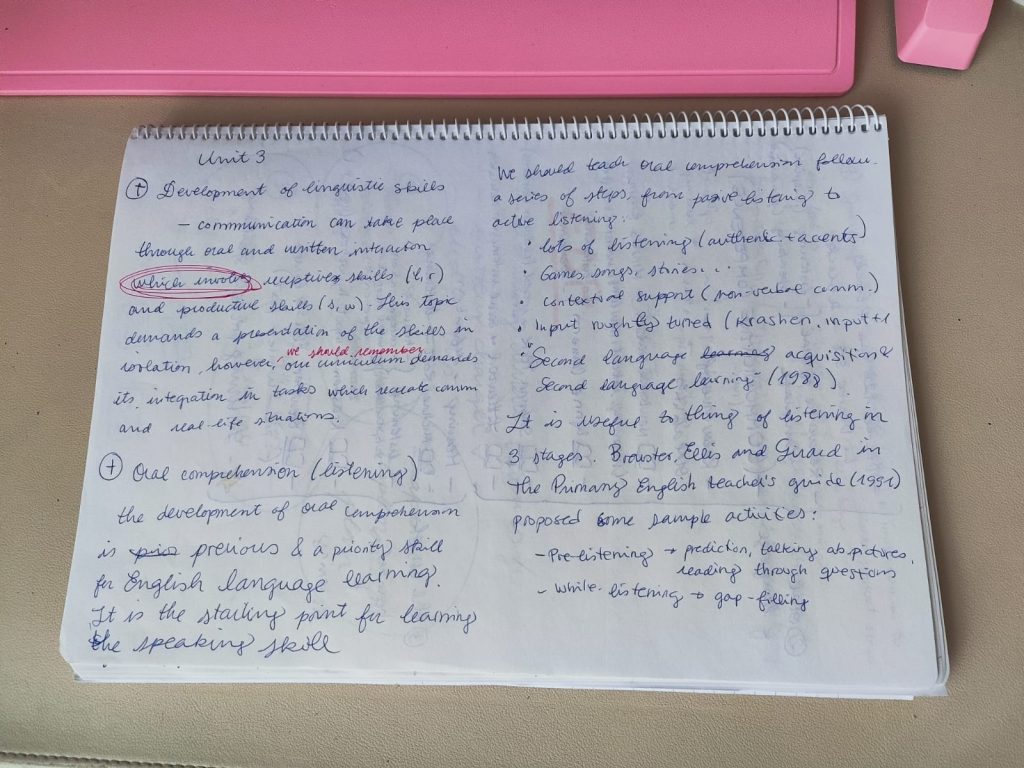 Unit 3
+ Development of linguistic skills
- communication can take place
through oral and written interaction
which involves receptive skills (l, r)
and productive skills (s, w). This topic
demands a presentation of the skills in
isolation, however, we should remember our curriculum demands
its integration in tasks which recreate comm
and real-life situations.
+ Oral comprehension (listening)
the development of oral comprehension
is previous & a priority skill
for English language learning.
It is the starting point for learning
the speaking skill
We should teach oral comprehension follow.
a series of steps, from passive listening to
active listening:
• lots of listening (authentic + accents)
• Games, songs, stories...
• Contextual support (non-verbal comm.)
• Input roughly tuned (Krashen, input +1
"Second language learning acquisition &
Second language learning" (1988)
It is useful to thing of listening in
3 stages. Brewster, Ellis and Girard in
The Primary English teacher's guide (1991)
proposed some sample activities:
- Pre-listening → prediction, talking ab. pictures,
reading through questions
- While-listening → gap-filling